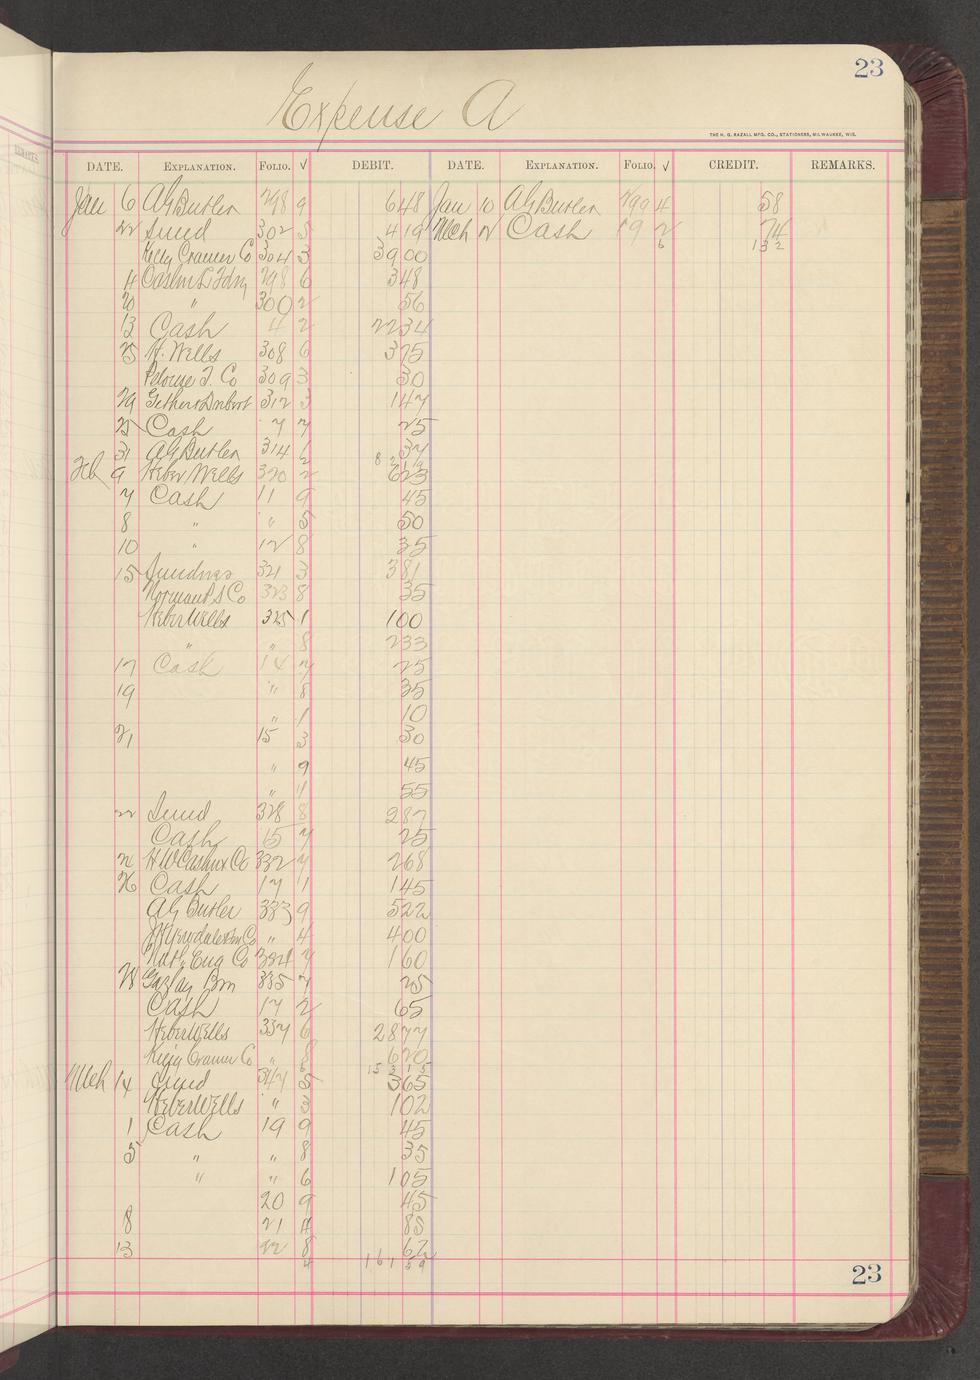 23
Expense A
THE H. G. RAZALL MFG. CO., STATIONERS, MILWAUKEE, WIS.
DATE. EXPLANATION. FOLIO. √ DEBIT. DATE. EXPLANATION. FOLIO. √ CREDIT. REMARKS.
Jan 6 AG Butler 298 9 648 Jan 10 AG Butler 299 4 58
22 Sund 302 5 419 Mch 12 Cash 19 2 74
Kelly Cramer Co 304 3 3900 6 132
4 298 6 348
20 " 300 2 56
13 Cash 4 2 2234
25 H. Wells 308 6 375
T. Co 309 3 30
29 312 3 147
25 Cash 7 7 25
31 AG Butler 314 6 37
Feb 9 Heber Wells 320 2 623
7 Cash 11 9 45
8 " " 5 50
10 " 12 8 35
15 Sundries 321 3 381
Co 323 8 35
Heber Wells 325 1 100
" " 8 233
17 Cash 14 7 25
19 " 8 35
" 1 10
21 15 3 30
" 9 45
" 1 55
22 Sund 328 8 287
Cash 15 7 25
H W Co 332 7 268
26 Cash 17 1 145
AG Butler 333 9 522
Co " 4 400
Nat. Eng Co 334 7 160
28 Gazlay Bros 335 7 25
Cash 17 2 65
Heber Wells 337 6 2877
Kelly Cramer Co " 8 620
Mch 14 Sund 347 5 365
Heber Wells " 3 102
1 Cash 19 9 45
5 " " 8 35
" " 6 105
20 9 45
8 21 4 85
13 22 8 62
4 161 59
23